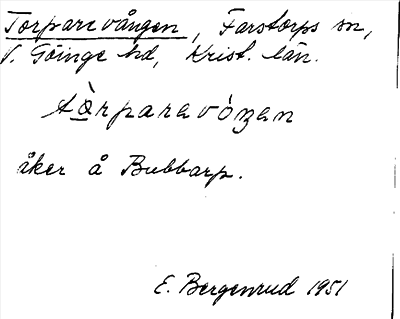 Torparevången, Farstorps sn,
V. Göinge hd, Krist. län.
tòrparavóŋan
åker å Bubbarp.
E. Bergenrud 1951